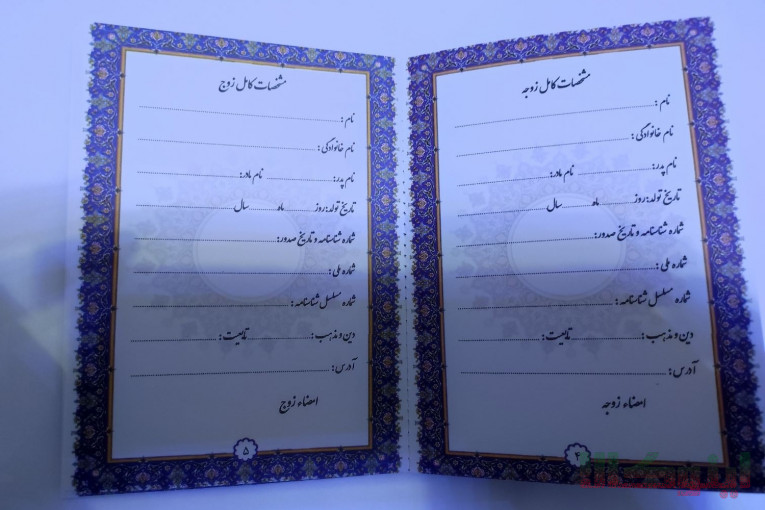 مشخصات کامل زوجه
نام :
نام خانوادگی :
نام پدر: نام مادر:
تاریخ تولد: روز ماه سال
شماره شناسنامه و تاریخ صدور:
شماره ملی :
شماره مسلسل شناسنامه :
دین و مذهب : تابعیت :
آدرس :
امضاء زوجه
۴
مشخصات کامل زوج
نام :
نام خانوادگی :
نام پدر: نام مادر:
تاریخ تولد: روز ماه سال
شماره شناسنامه و تاریخ صدور:
شماره ملی :
شماره مسلسل شناسنامه :
دین و مذهب : تابعیت :
آدرس :
امضاء زوج
۵